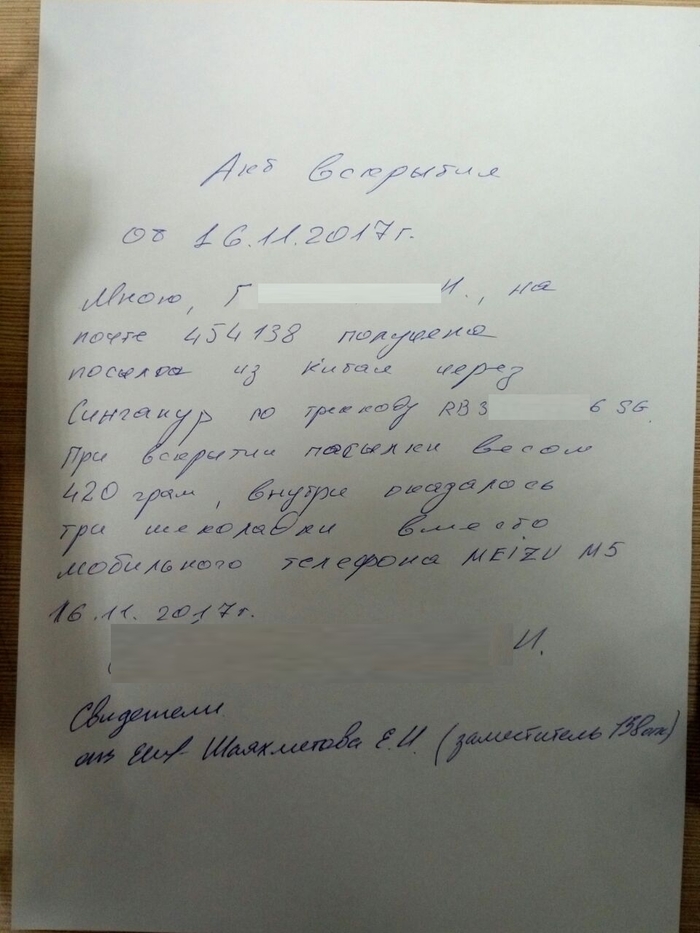 Акт вскрытия
от 16.11.2017г.
Мною, Г И., на
почте 454138 получена
посылка из Китая через
Сингапур по треккоду RB3 6 SG.
При вскрытии пасылки весом
420 грам, внутри оказалось
три шеколадки вместо
мобильного телефона MEIZU M5
16.11.2017г.
И.
Свидетели
Шаяхметова Е.И. (заместитель 138